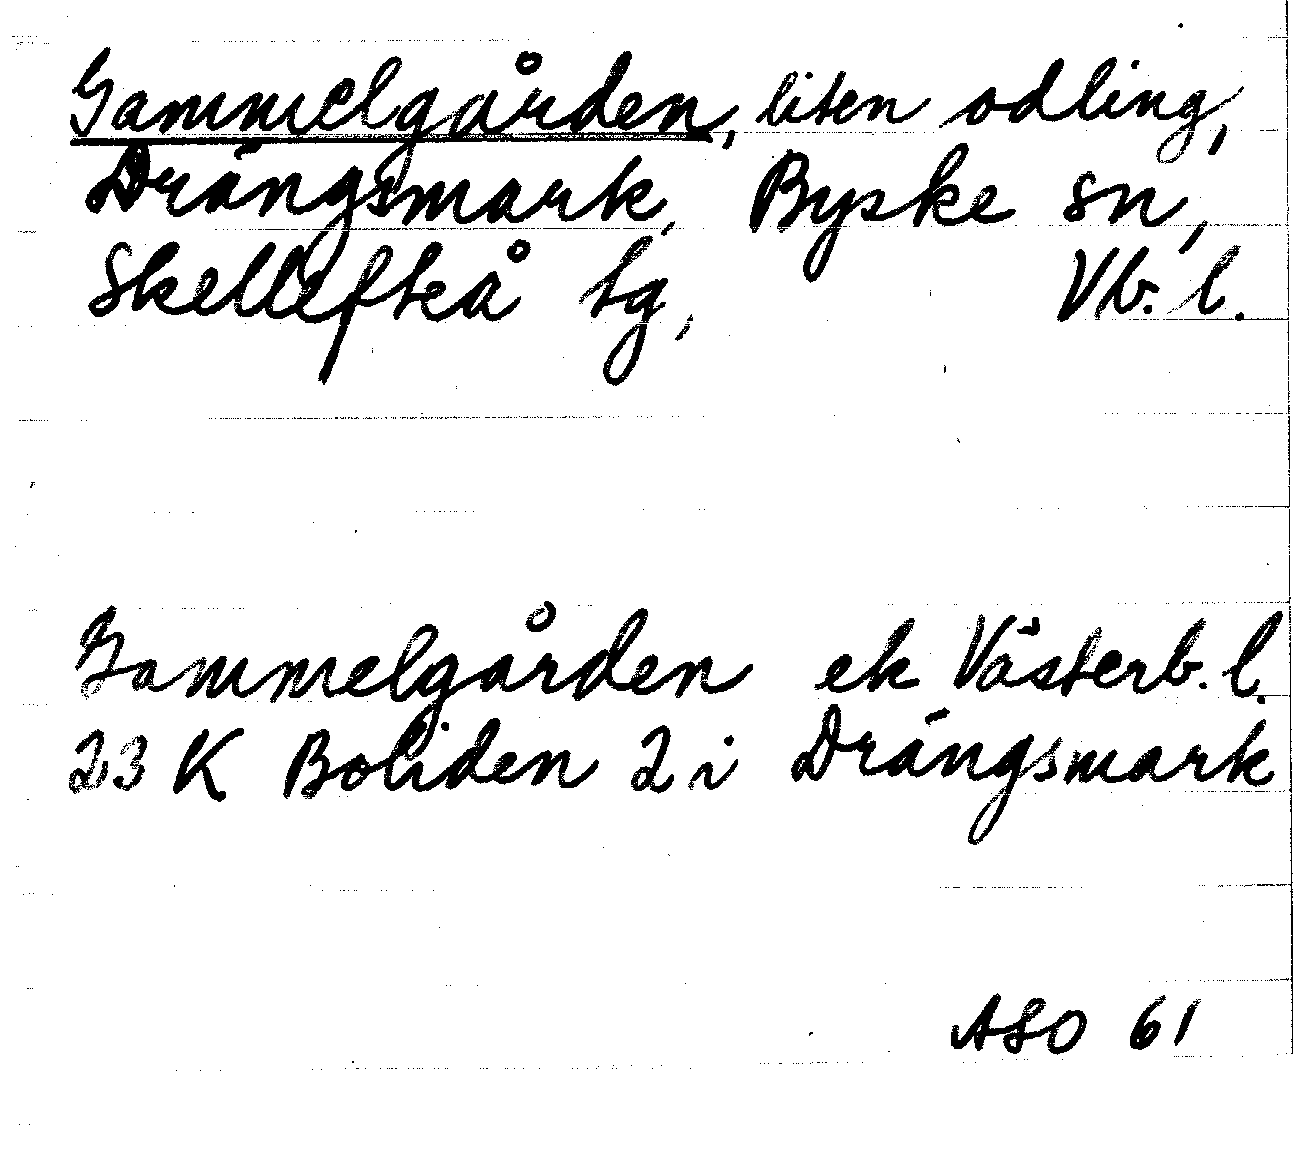 Gammelgården, liten odling,
Drängsmark, Byske sn,
Skellefteå tg, Vb. l.
Gammelgården ek Västerb. l.
23 K Boliden 2 i Drängsmark
ASO 61